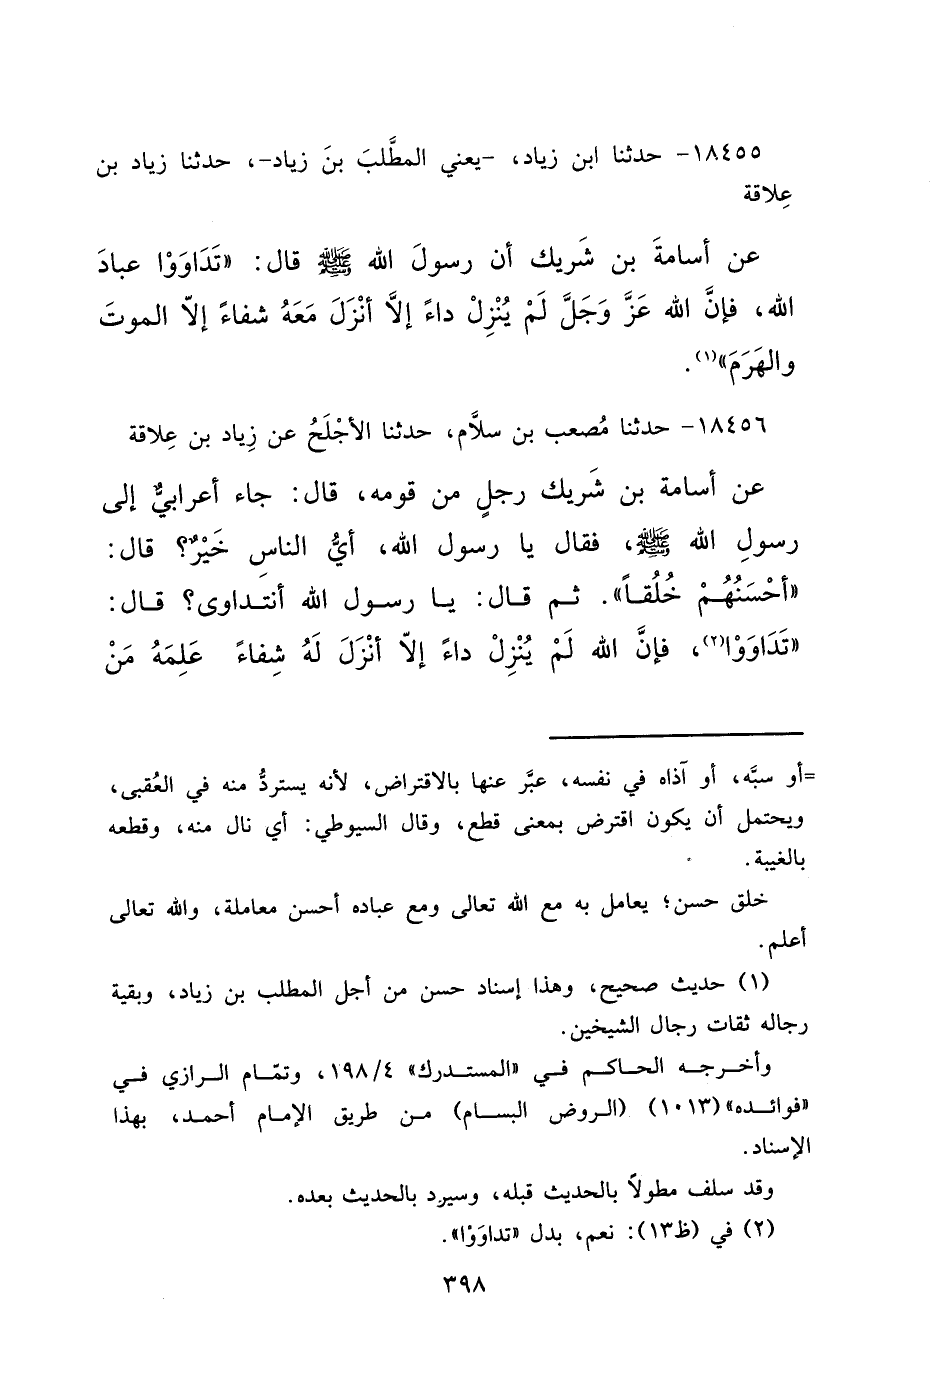 ١٨٤٥٥- حدثنا ابن زياد، -يعني المطَّلبَ بنَ زياد-، حدثنا زياد بن
عِلاقة
عن أسامةَ بن شَريك أن رسولَ الله ﷺ قال: «تَدَاوَوْا عبادَ
الله، فإنَّ الله عَزَّ وَجَلَّ لَمْ يُنْزِلْ داءً إلَّا أنْزَلَ مَعَهُ شفاءً إلاّ الموتَ
والهَرَمَ»(١).
١٨٤٥٦- حدثنا مُصعب بن سلَّام، حدثنا الأجْلَحُ عن زِياد بن عِلاقة
عن أسامة بن شَريك رجلٍ من قومه، قال: جاء أعرابيٌّ إلى
رسولِ الله ﷺ، فقال يا رسول الله، أيُّ الناسِ خَيْرٌ؟ قال:
«أحْسَنُهُمْ خُلُقاً». ثم قال: يا رسول الله أنتداوى؟ قال:
«تَدَاوَوْا(٢)، فإنَّ الله لَمْ يُنْزِلْ داءً إلاّ أنْزَلَ لَهُ شِفاءً عَلِمَهُ مَنْ
=أو سبَّه، أو آذاه في نفسه، عبَّر عنها بالاقتراض، لأنه يستردُّ منه في العُقبى،
ويحتمل أن يكون اقترض بمعنى قطع، وقال السيوطي: أي نال منه، وقطعه
بالغيبة.
خلق حسن؛ يعامل به مع الله تعالى ومع عباده أحسن معاملة، والله تعالى
أعلم.
(١) حديث صحيح، وهذا إسناد حسن من أجل المطلب بن زياد، وبقية
رجاله ثقات رجال الشيخين.
وأخرجه الحاكم في «المستدرك» ١٩٨/٤، وتمّام الرازي في
«فوائده»(١٠١٣) (الروض البسام) من طريق الإمام أحمد، بهذا
الإسناد.
وقد سلف مطولاً بالحديث قبله، وسيرد بالحديث بعده.
(٢) في (ظ١٣): نعم، بدل «تداوَوْا».
٣٩٨